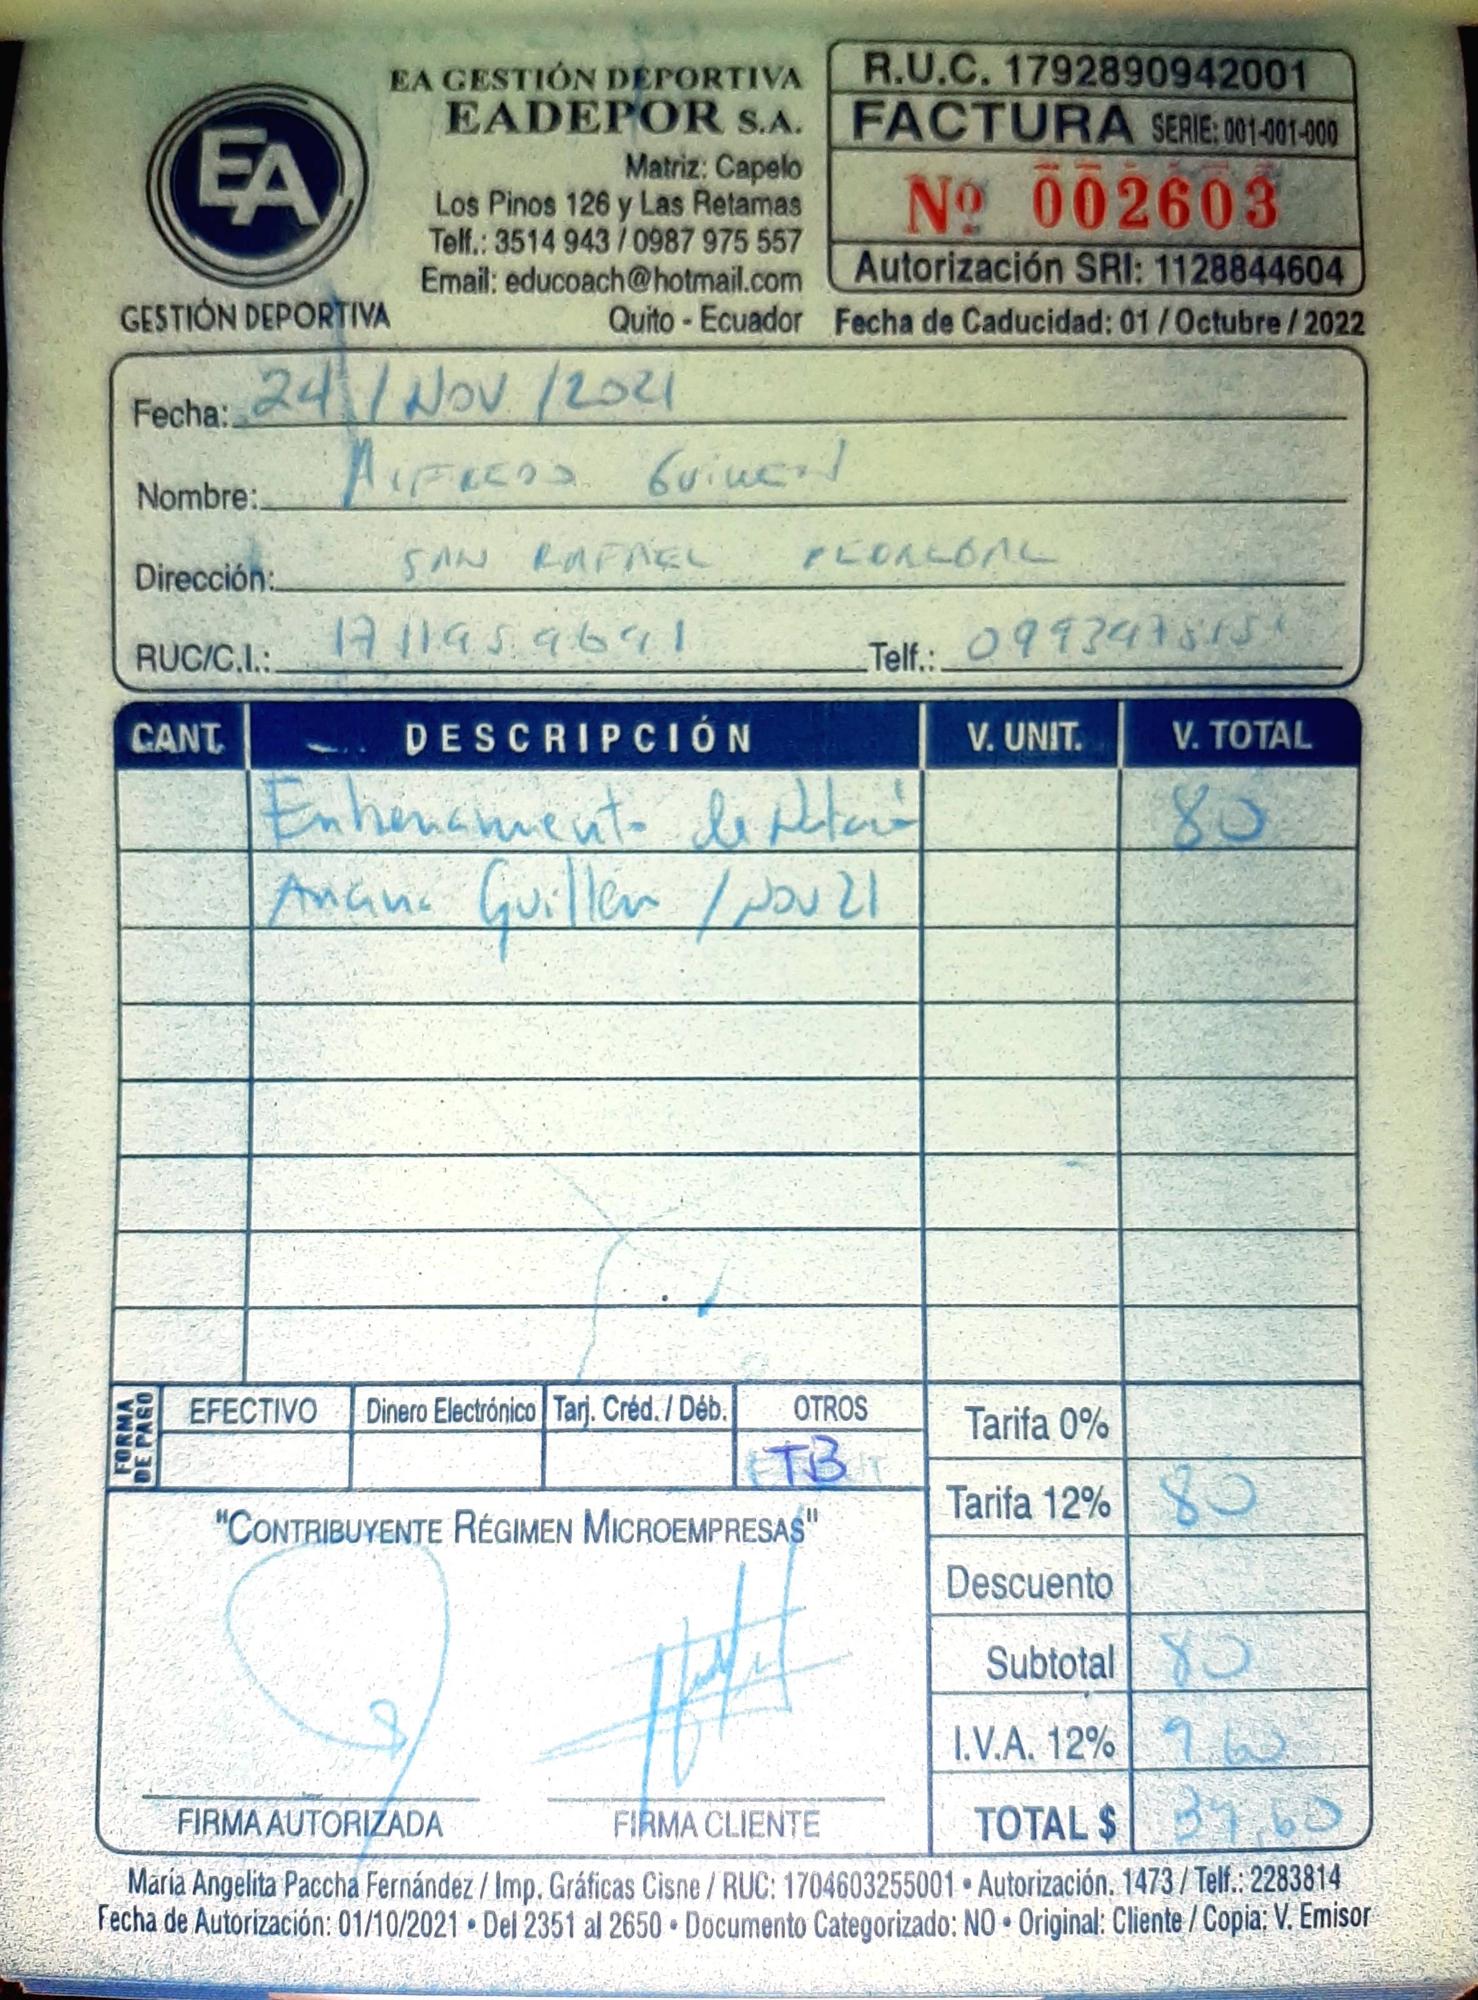 EA GESTIÓN DEPORTIVA
EADEPOR S.A.
Matriz: Capelo
Los Pinos 126 y Las Retamas
Telf.: 3514 943 / 0987 975 557
Email: educoach@hotmail.com
Quito - Ecuador
EA
GESTIÓN DEPORTIVA
R.U.C. 1792890942001
FACTURA SERIE: 001-001-000
Nº 002603
Autorización SRI: 1128844604
Fecha de Caducidad: 01 / Octubre / 2022
Fecha: 24 / Nov / 2021
Nombre: Alfredo
Dirección: SAN RAFAEL
RUC/C.I.: Telf.:
CANT. DESCRIPCIÓN V. UNIT. V. TOTAL
Entrenamiento de 80
Guillen / Nov 21
FORMA DE PAGO
EFECTIVO Dinero Electrónico Tarj. Créd. / Déb. OTROS
TB
Tarifa 0%
Tarifa 12% 80
Descuento
Subtotal 80
I.V.A. 12% 9.60
TOTAL $
"CONTRIBUYENTE RÉGIMEN MICROEMPRESAS"
FIRMA AUTORIZADA FIRMA CLIENTE
María Angelita Paccha Fernández / Imp. Gráficas Cisne / RUC: 1704603255001 • Autorización. 1473 / Telf.: 2283814
Fecha de Autorización: 01/10/2021 • Del 2351 al 2650 • Documento Categorizado: NO • Original: Cliente / Copia: V. Emisor